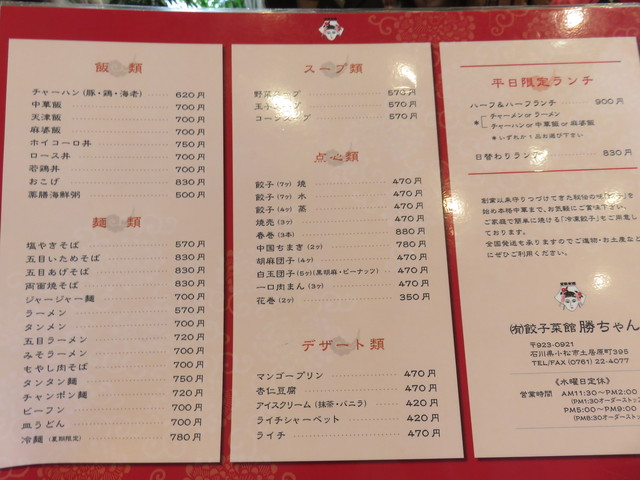 飯類
チャーハン(豚・鶏・海老) 620円
中華飯 700円
天津飯 700円
麻婆飯 700円
ホイコーロ丼 750円
ロース丼 700円
若鶏丼 700円
おこげ 830円
薬膳海鮮粥 500円
麺類
塩やきそば 570円
五目いためそば 830円
五目あげそば 830円
両面焼そば 830円
ジャージャー麺 700円
ラーメン 570円
タンメン 700円
五目ラーメン 720円
みそラーメン 700円
もやし肉そば 700円
タンタン麺 750円
チャンポン麺 720円
ビーフン 700円
皿うどん 700円
冷麺(夏期限定) 780円
スープ類
野菜スープ 570円
玉子スープ 570円
コーンスープ 570円
点心類
餃子(7ヶ)焼 470円
餃子(7ヶ)水 470円
餃子(4ヶ)蒸 470円
焼売(3ヶ) 470円
春巻(3本) 880円
中国ちまき(2ヶ) 780円
胡麻団子(4ヶ) 470円
白玉団子(5ヶ)(黒胡麻・ピーナッツ) 470円
一口肉まん(3ヶ) 470円
花巻(2ヶ) 350円
デザート類
マンゴープリン 470円
杏仁豆腐 470円
アイスクリーム(抹茶・バニラ) 420円
ライチシャーベット 420円
ライチ 470円
平日限定ランチ
ハーフ&ハーフランチ 900円
* チャーメン or ラーメン
チャーハン or 中華飯 or 麻婆飯
*いずれか1品お選び下さい
日替わりランチ 830円
創業以来守りつづけてきた秘伝の味
始め本格中華まで、お気軽にご賞味下さい。
ご家庭で簡単に焼ける「冷凍餃子」もご用意し
ております。
全国発送も承りますのでご進物・お土産な
にぜひご利用ください。
㈲餃子菜館 勝ちゃん
〒923-0921
石川県小松市土居原町395
TEL/FAX (0761) 22-4077
《水曜日定休》
営業時間 AM11:30～PM2:00
(PM1:30オーダーストップ
PM5:00～PM9:00
(PM8:30オーダーストップ